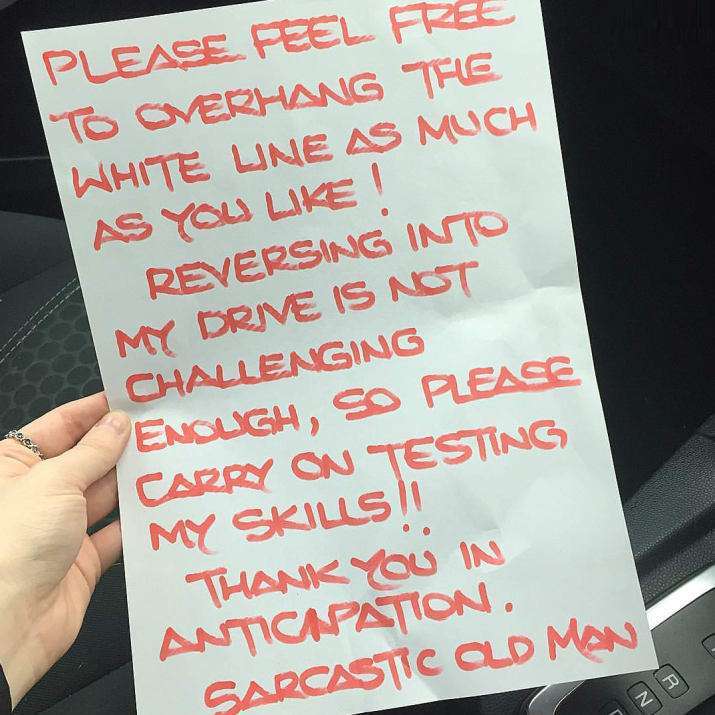 PLEASE FEEL FREE
TO OVERHANG THE
WHITE LINE AS MUCH
AS YOU LIKE!
REVERSING INTO
MY DRIVE IS NOT
CHALLENGING
ENOUGH, SO PLEASE
CARRY ON TESTING
MY SKILLS!!
THANK YOU IN
ANTICIPATION.
SARCASTIC OLD MAN
R
N